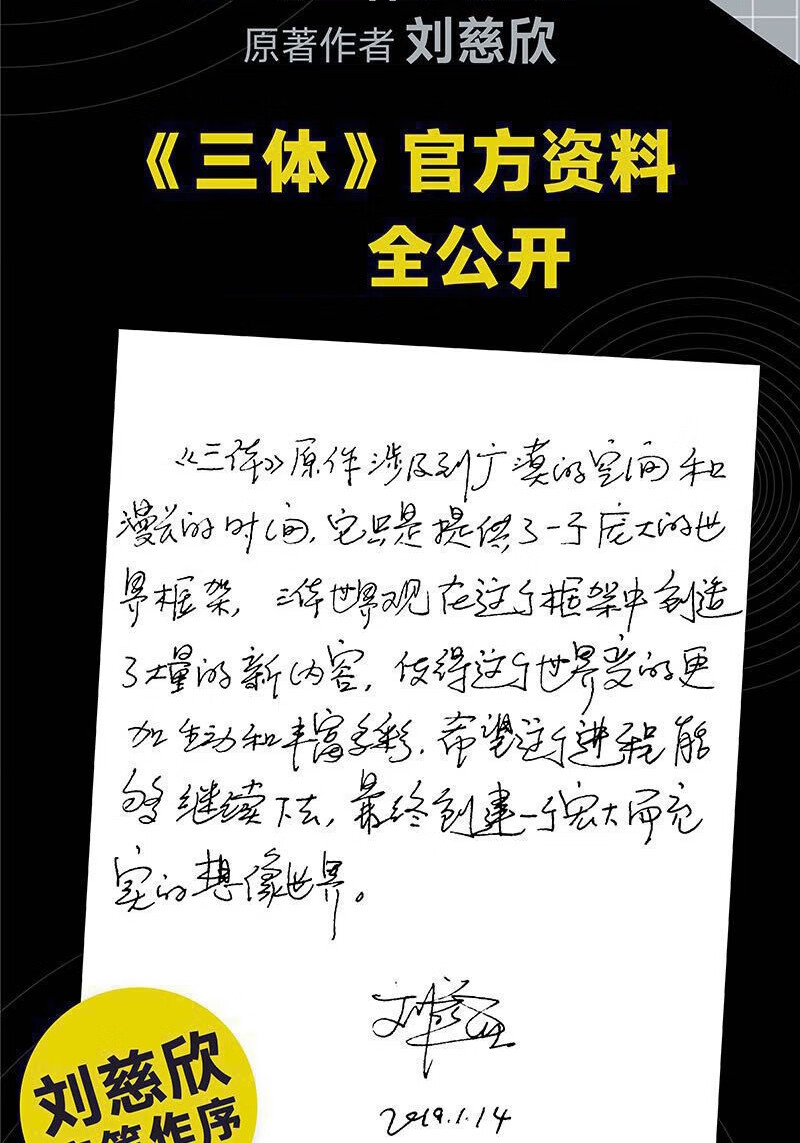 原著作者 刘慈欣
《三体》官方资料
全公开
《三体》原作涉及到广漠的空间和
漫长的时间,它只是提供了一个庞大的世
界框架,三体世界观在这个框架中创造
了大量的新内容,使得这个世界变的更
加生动和丰富多彩.希望这个进程能
够继续下去,最终创建一个宏大而充
实的想像世界。
刘慈欣
2019.1.14
刘慈欣
笔作序